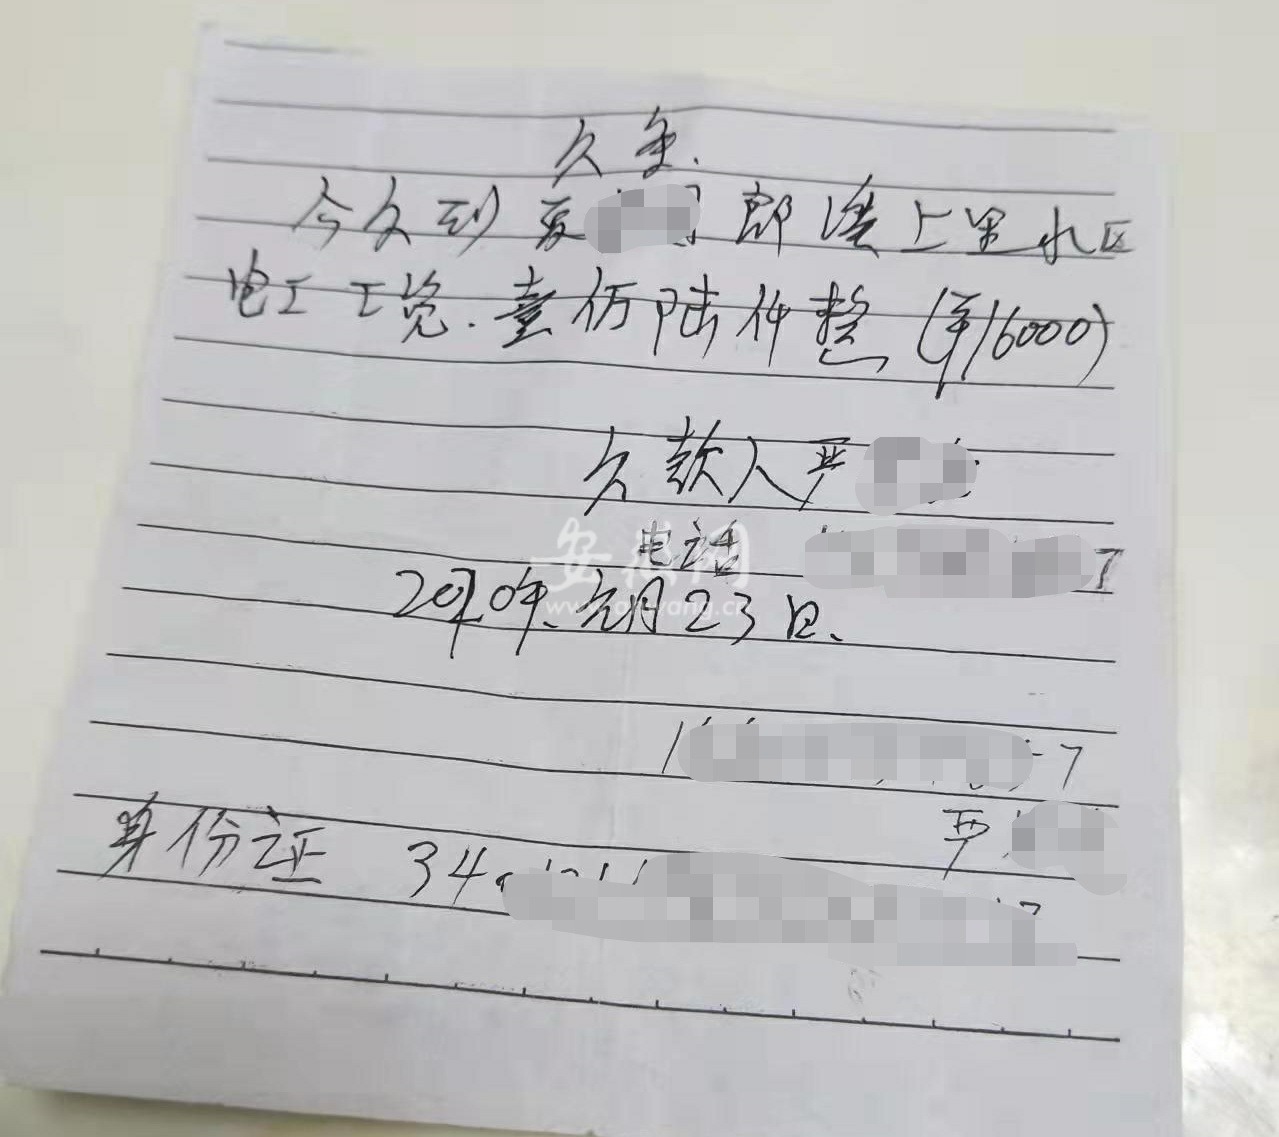 欠条.
今欠到夏 郎溪上里水区
电工工资.壹仿陆仟整(¥16000)
欠款人严
电话 7
2020年元月23日、
安徽网
www.ahwang.cn
1 7
严
身份证 34